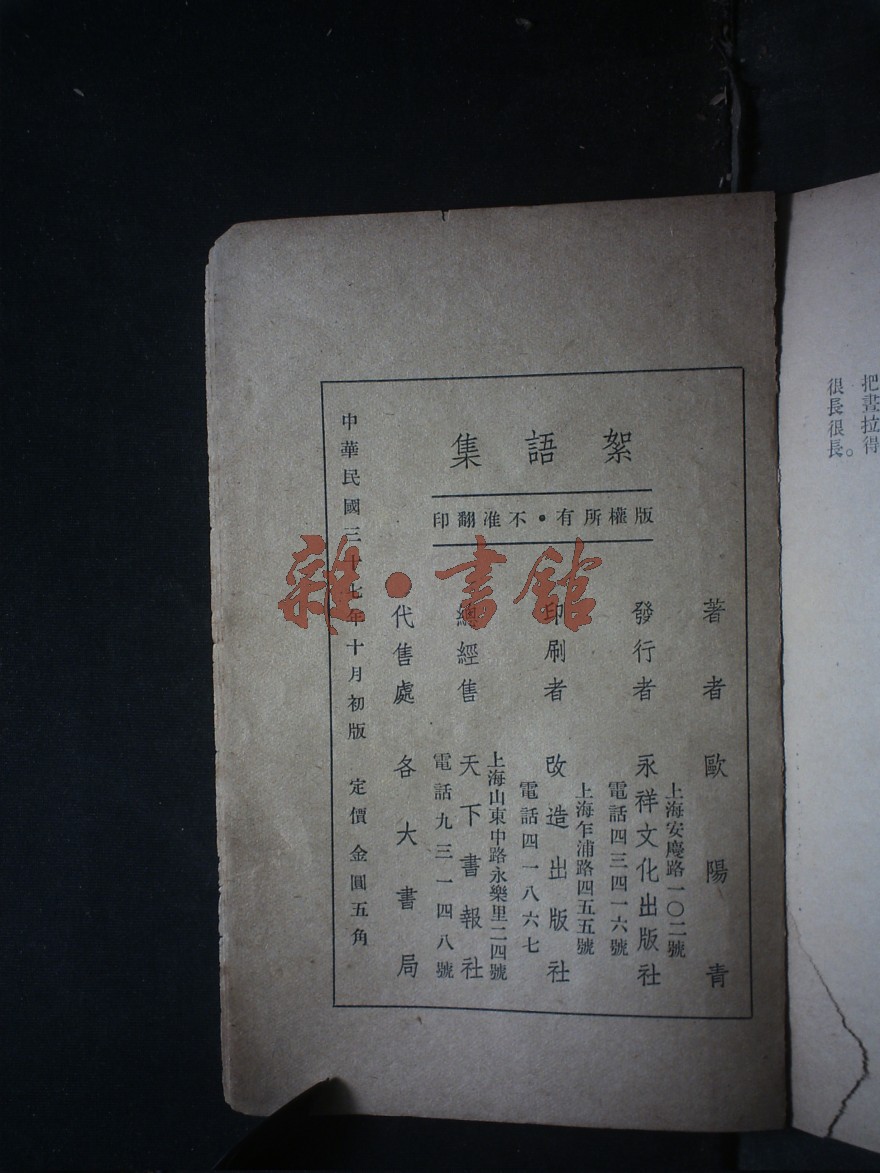 把畫拉得
很長很長。
絮語集
版權所有•不准翻印
著者 歐陽青
上海安慶路一〇二號
發行者 永祥文化出版社
電話四三四一六號
上海乍浦路四五五號
印刷者 改造出版社
電話四一八六七
上海山東中路永樂里二四號
總經售 天下書報社
電話九三一四八號
代售處 各大書局
中華民國三十七年十月初版 定價金圓五角
雜•書館